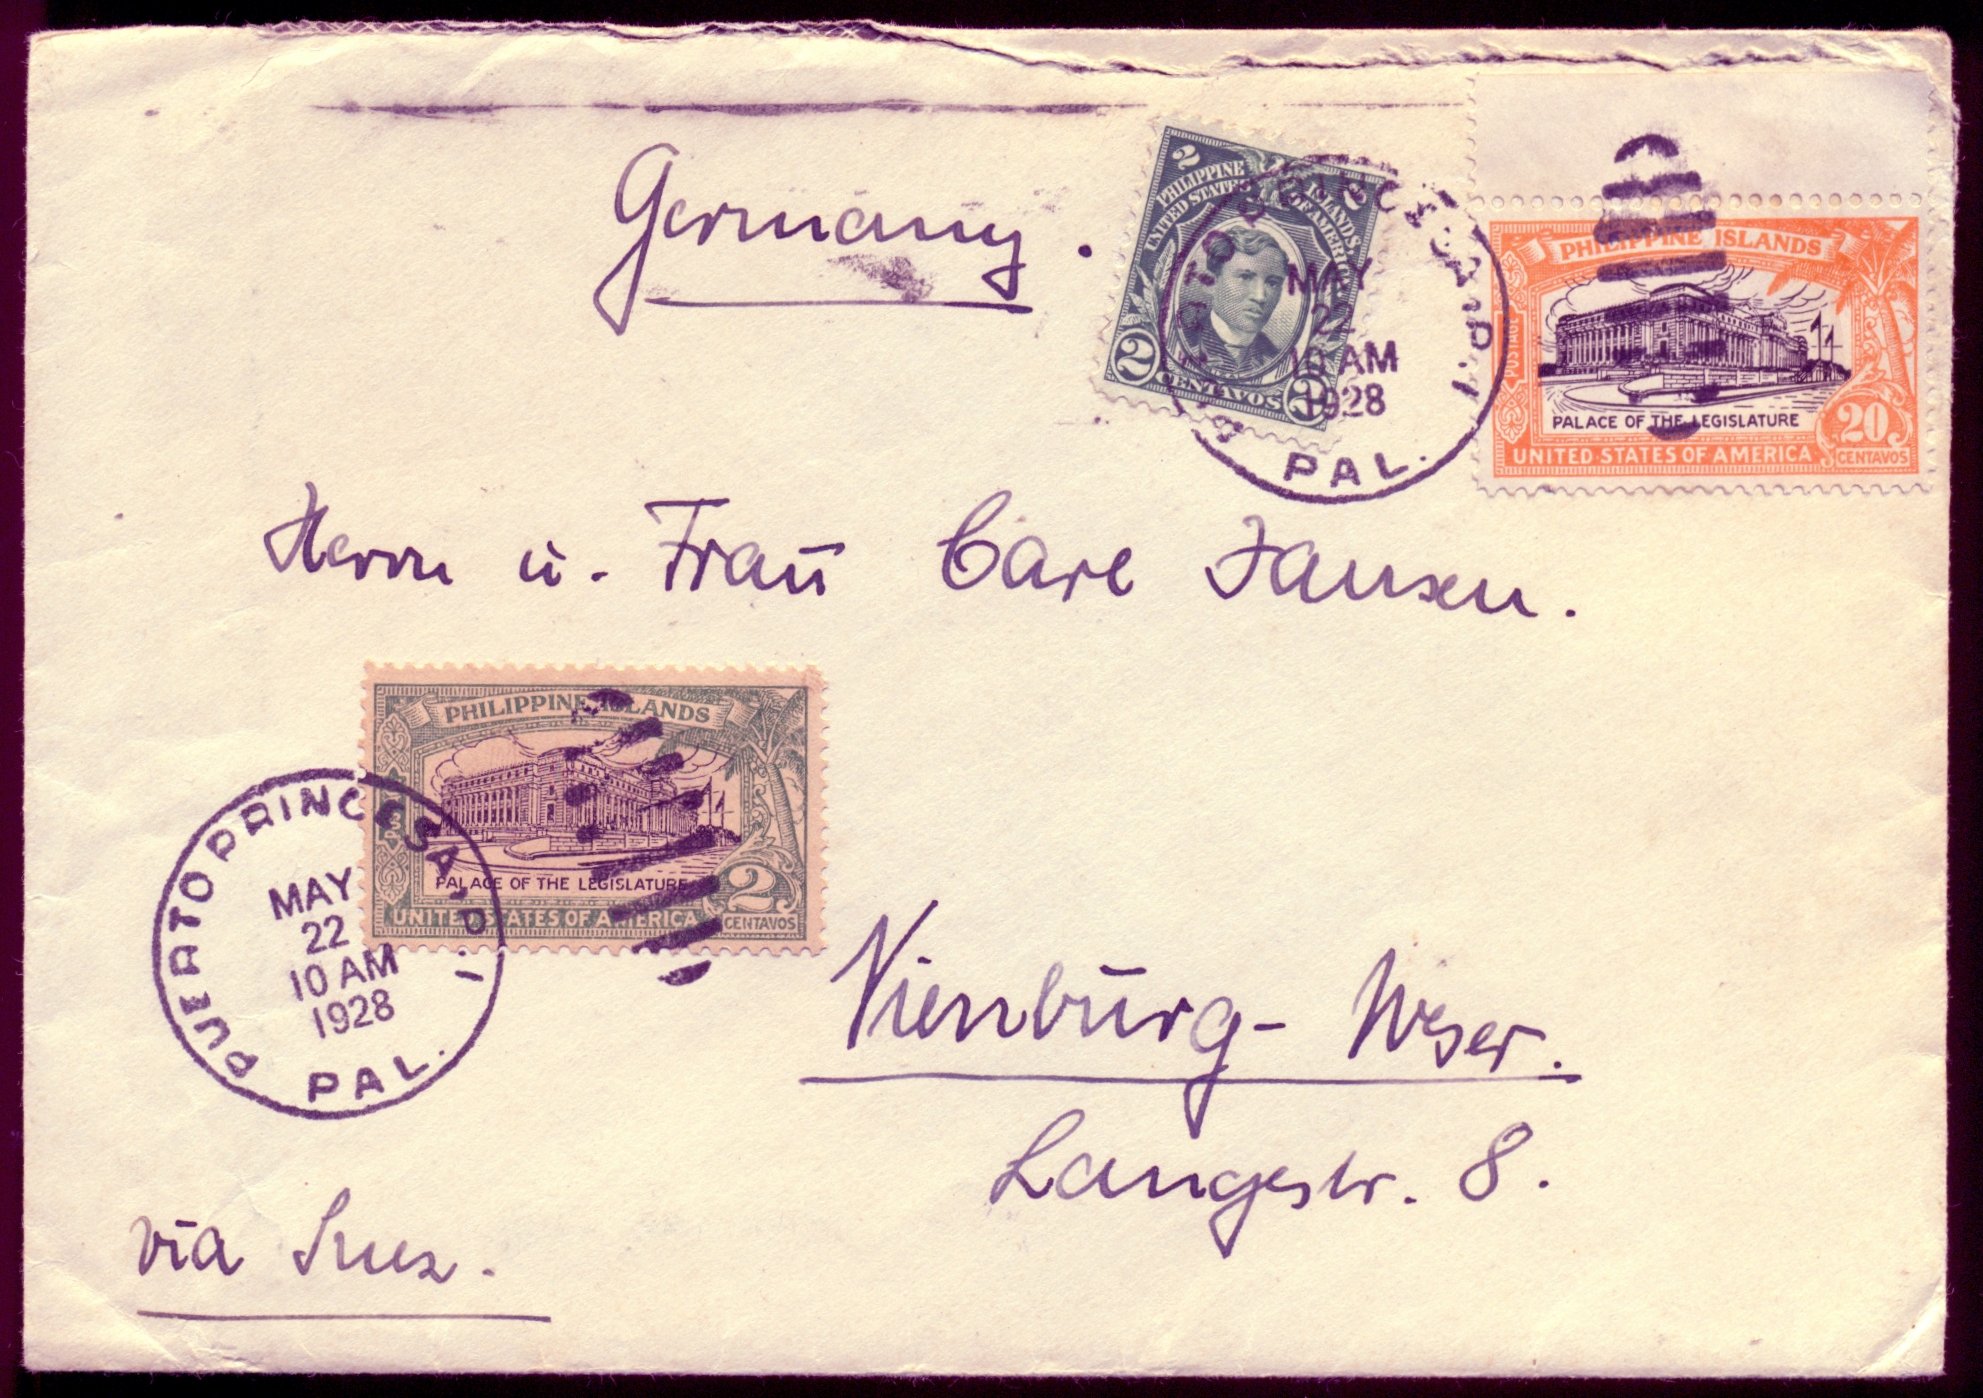 Germany.
2 2
PHILIPPINE ISLANDS
UNITED STATES OF AMERICA
2 CENTAVOS 2
PUERTO PRINCESA, P.I.
MAY
22
10 AM
1928
PAL.
PHILIPPINE ISLANDS
POSTAGE
PALACE OF THE LEGISLATURE
20
UNITED STATES OF AMERICA CENTAVOS
Herrn u. Frau Carl Jansen.
PHILIPPINE ISLANDS
PALACE OF THE LEGISLATURE
2
UNITED STATES OF AMERICA CENTAVOS
PUERTO PRINCESA, P.I.
MAY
22
10 AM
1928
PAL.
Nienburg-Weser.
Langestr. 8.
via Suez.